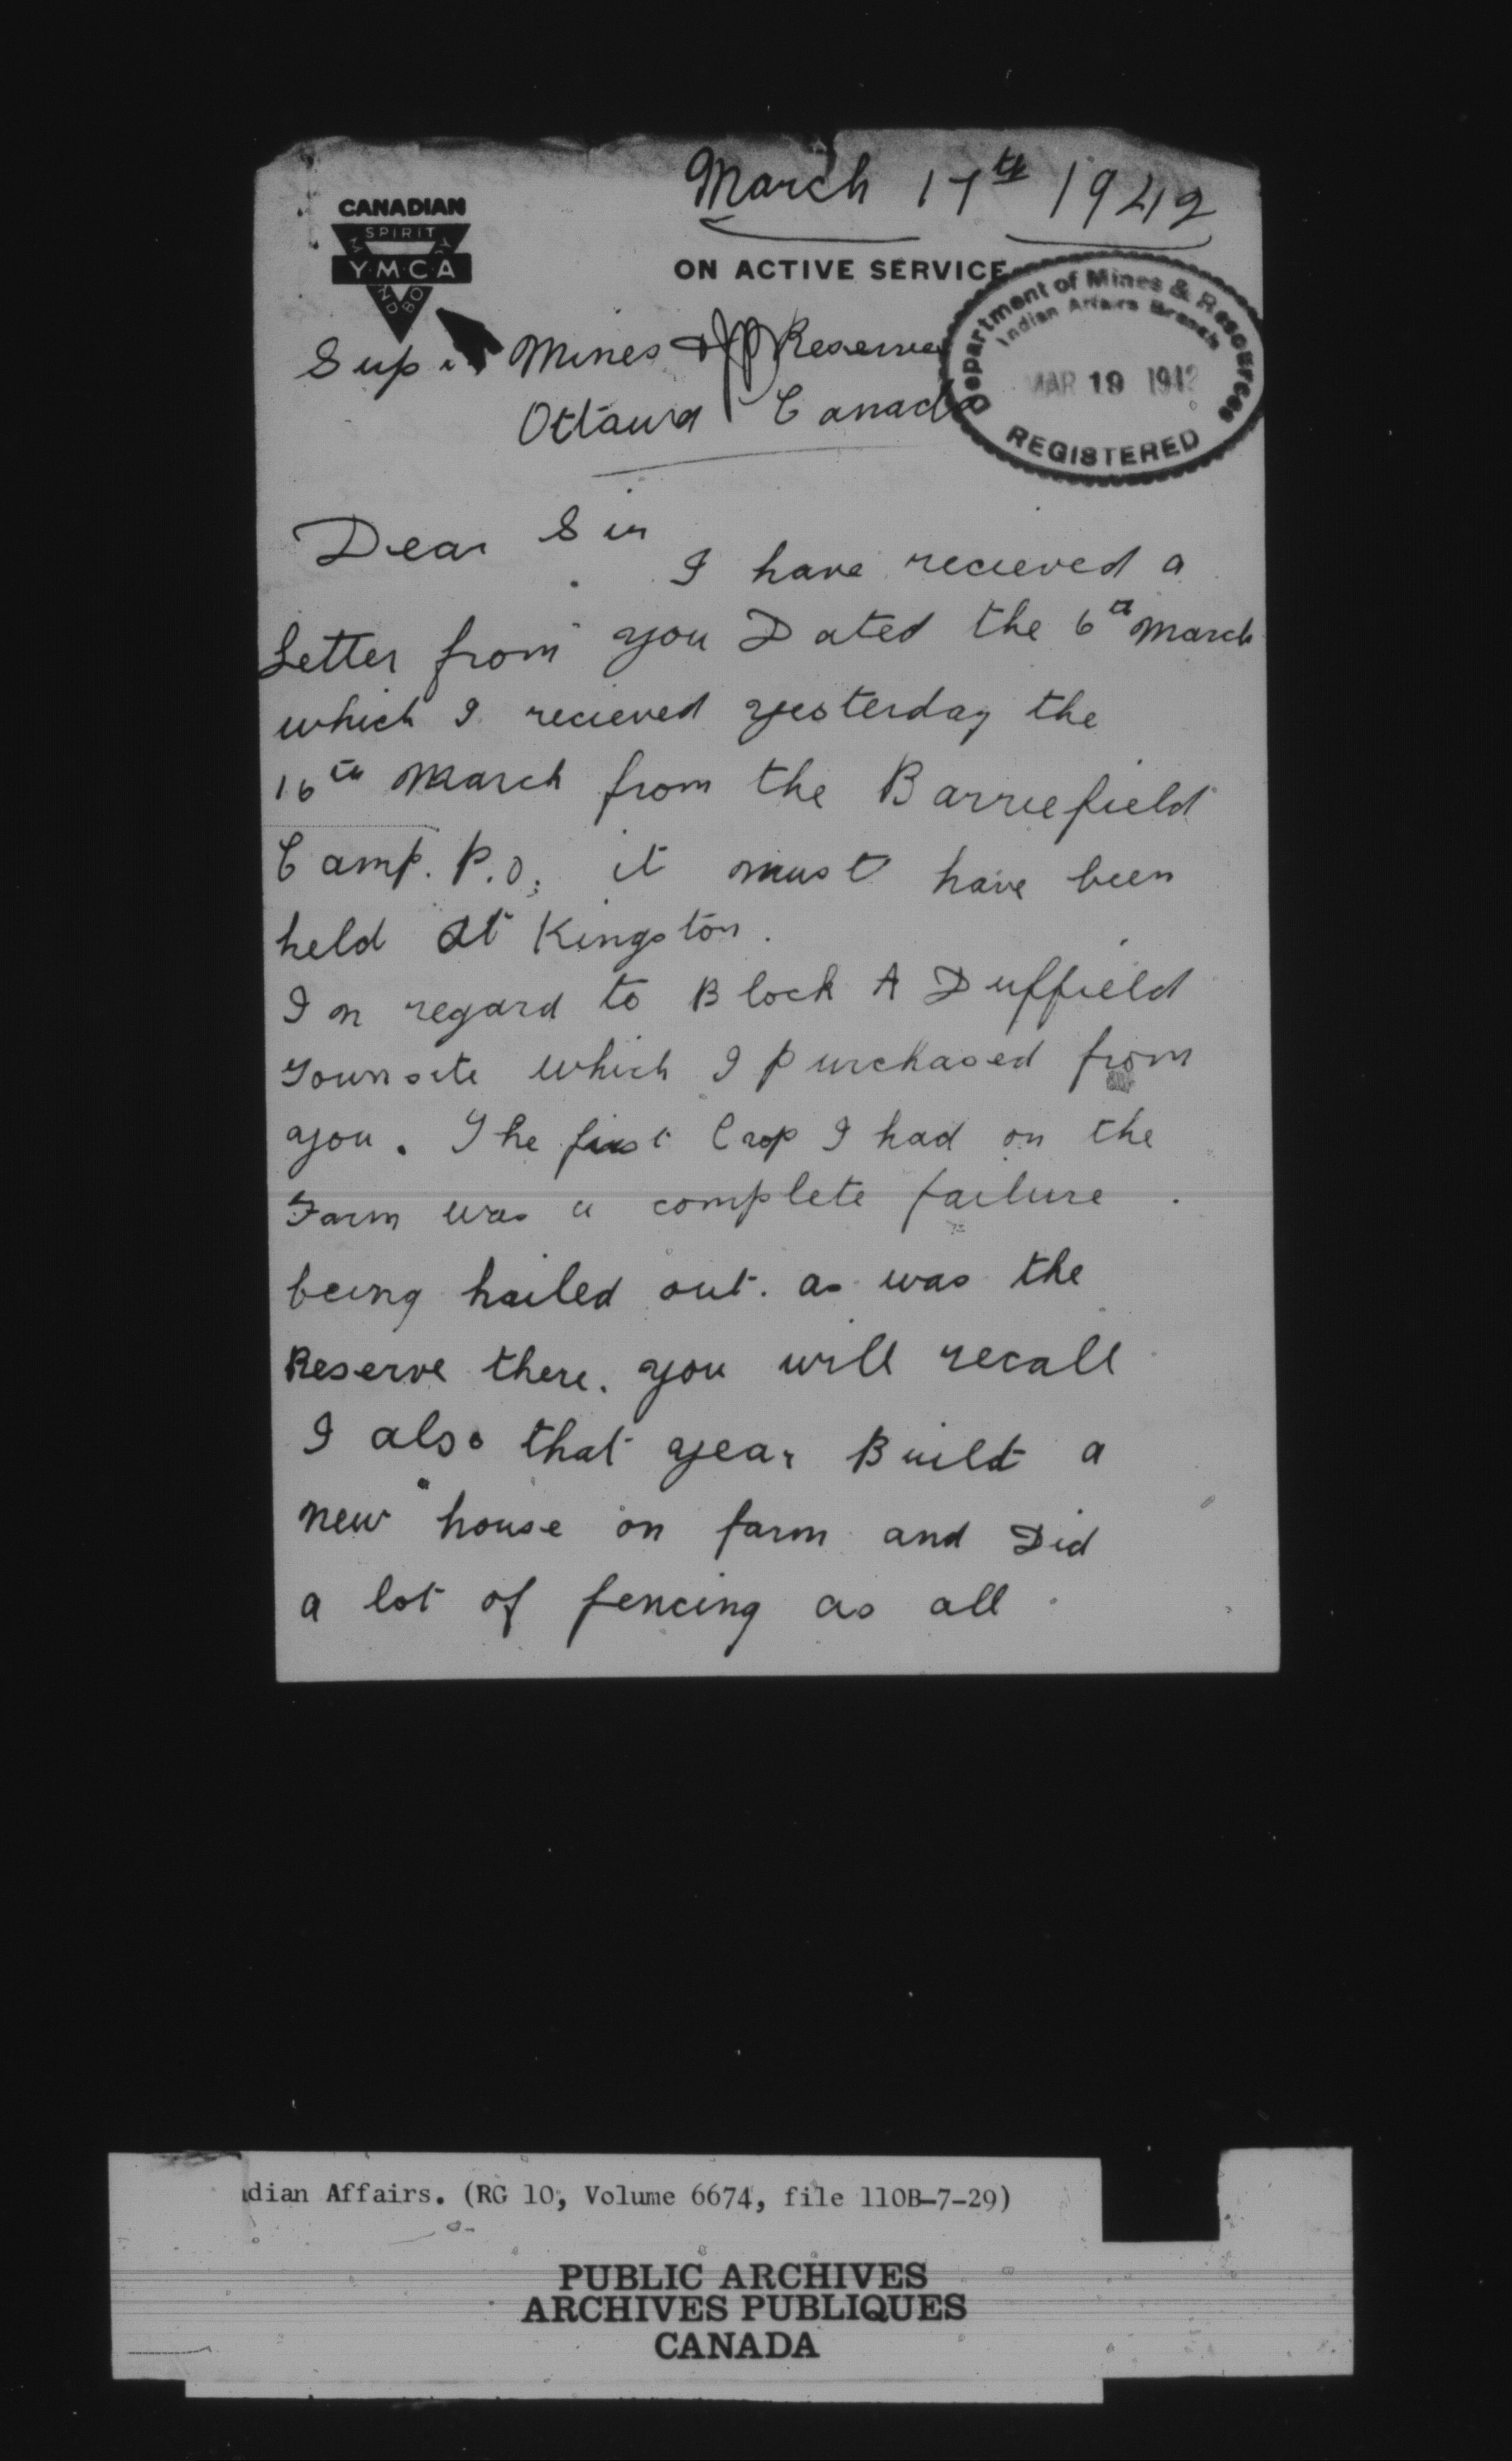 March 17th 1942
CANADIAN
SPIRIT
Y·M·C·A
MIND BODY
ON ACTIVE SERVICE
Department of Mines & Resources
Indian Affairs Branch
MAR 19 1942
REGISTERED
Sup Mines & Reserves
Ottawa Canada
Dear Sir
I have recieved a
Letter from you Dated the 6th March
which I recieved yesterday the
16th March from the Barriefield
Camp. P.O; it must have been
held at Kingston.
In regard to Block A Duffield
Townsite which I purchased from
you. The first Crop I had on the
Farm was a complete failure.
being hailed out. as was the
Reserve there. you will recall
I also that year Build a
new house on farm and Did
a lot of fencing as all
dian Affairs. (RG 10, Volume 6674, file 110B-7-29)
PUBLIC ARCHIVES
ARCHIVES PUBLIQUES
CANADA